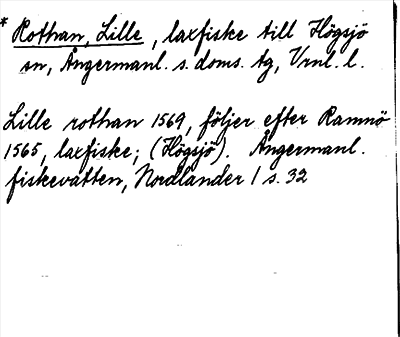 * Rothan, Lille, laxfiske till Högsjö
sn, Ångermanl. s. doms. tg, Vrnl. l.
Lille rothan 1569, följer efter Ramnö
1565, laxfiske; (Högsjö). Ångermanl.
fiskevatten, Nordlander 1 s. 32